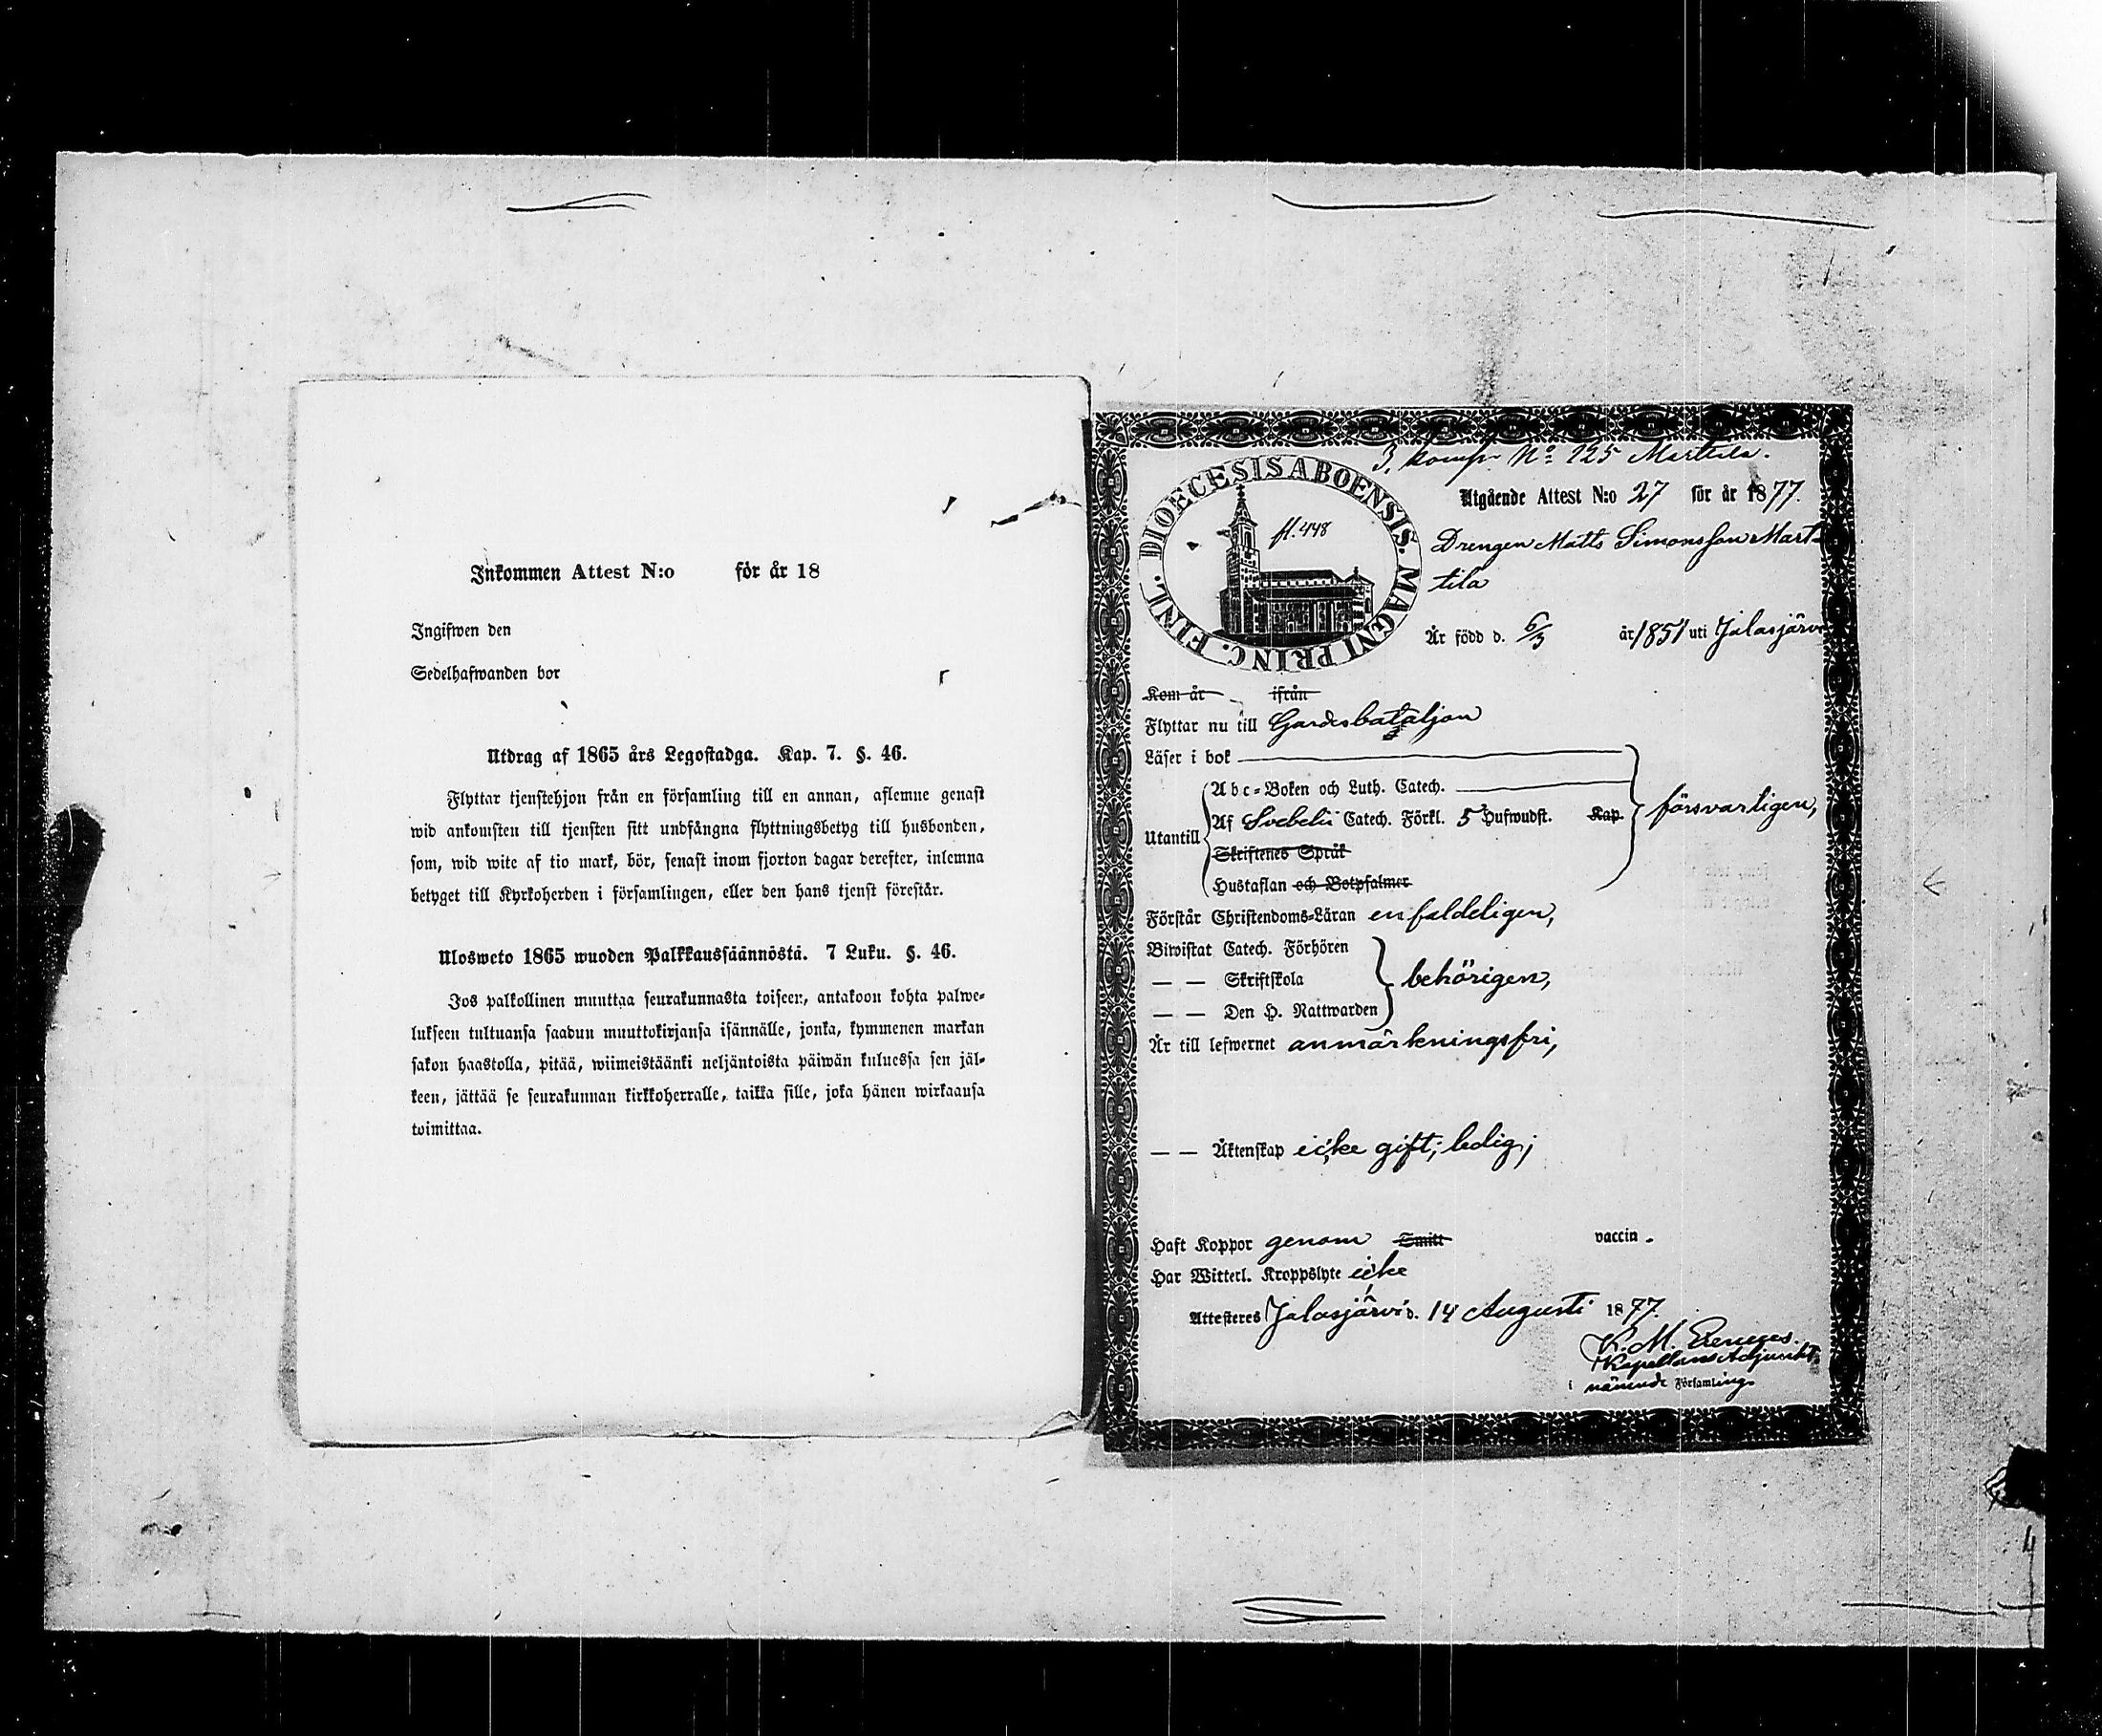 Inkommen Attest N:o för år 18
Ingifwen den
Sedelhafwanden bor
Utdrag af 1865 års Legostadga. Kap. 7. §. 46.
Flyttar tjenstehjon från en församling till en annan, aflemne genast
wid ankomsten till tjensten sitt undfångna flyttningsbetyg till husbonden,
som, wid wite af tio mark, bör, senast inom fjorton dagar derefter, inlemna
betyget till Kyrkoherden i församlingen, eller den hans tjenst förestår.
Ulosweto 1865 wuoden Palkkaussäännöstä. 7 Luku. §. 46.
Jos palkollinen muuttaa seurakunnasta toiseen, antakoon kohta palwe-
lukseen tultuansa saadun muuttokirjansa isännälle, jonka, kymmenen markan
sakon haastolla, pitää, wiimeistäänki neljäntoista päiwän kuluessa sen jäl-
keen, jättää se seurakunnan kirkkoherralle, taikka sille, joka hänen wirkaansa
toimittaa.
3. komp. No 125 Marttila.
DIOECESIS ABOENSIS. MAGNI PRINC. FINL.
fl. 448
Utgående Attest N:o 27 för år 1877.
Drengen Matts Simonsson Mart-
tila
Är född d. 6/3 år 1851 uti Jalasjärvi
Kom år ifrån
Flyttar nu till Gardesbataljon
Läser i bok
Utantill
Abc-Boken och Luth. Catech.
Af Svebelii Catech. Förkl. 5 Hufwudst. Kap. försvarligen,
Skriftenes Språk
Hustaflan och Botpsalmer
Förstår Christendoms-Läran enfaldeligen,
Biwistat Catech. Förhören
— — Skriftskola behörigen,
— — Den H. Nattwarden
Är till lefwernet anmärkningsfri,
— — Äktenskap icke gift; ledig;
Haft Koppor genom Smitt vaccin.
Har Witterl. Kroppslyte icke
Attesteras Jalasjärvi d. 14 Augusti 1877.
K. M.
Kapellans Adjunkt
i nämnde Församling